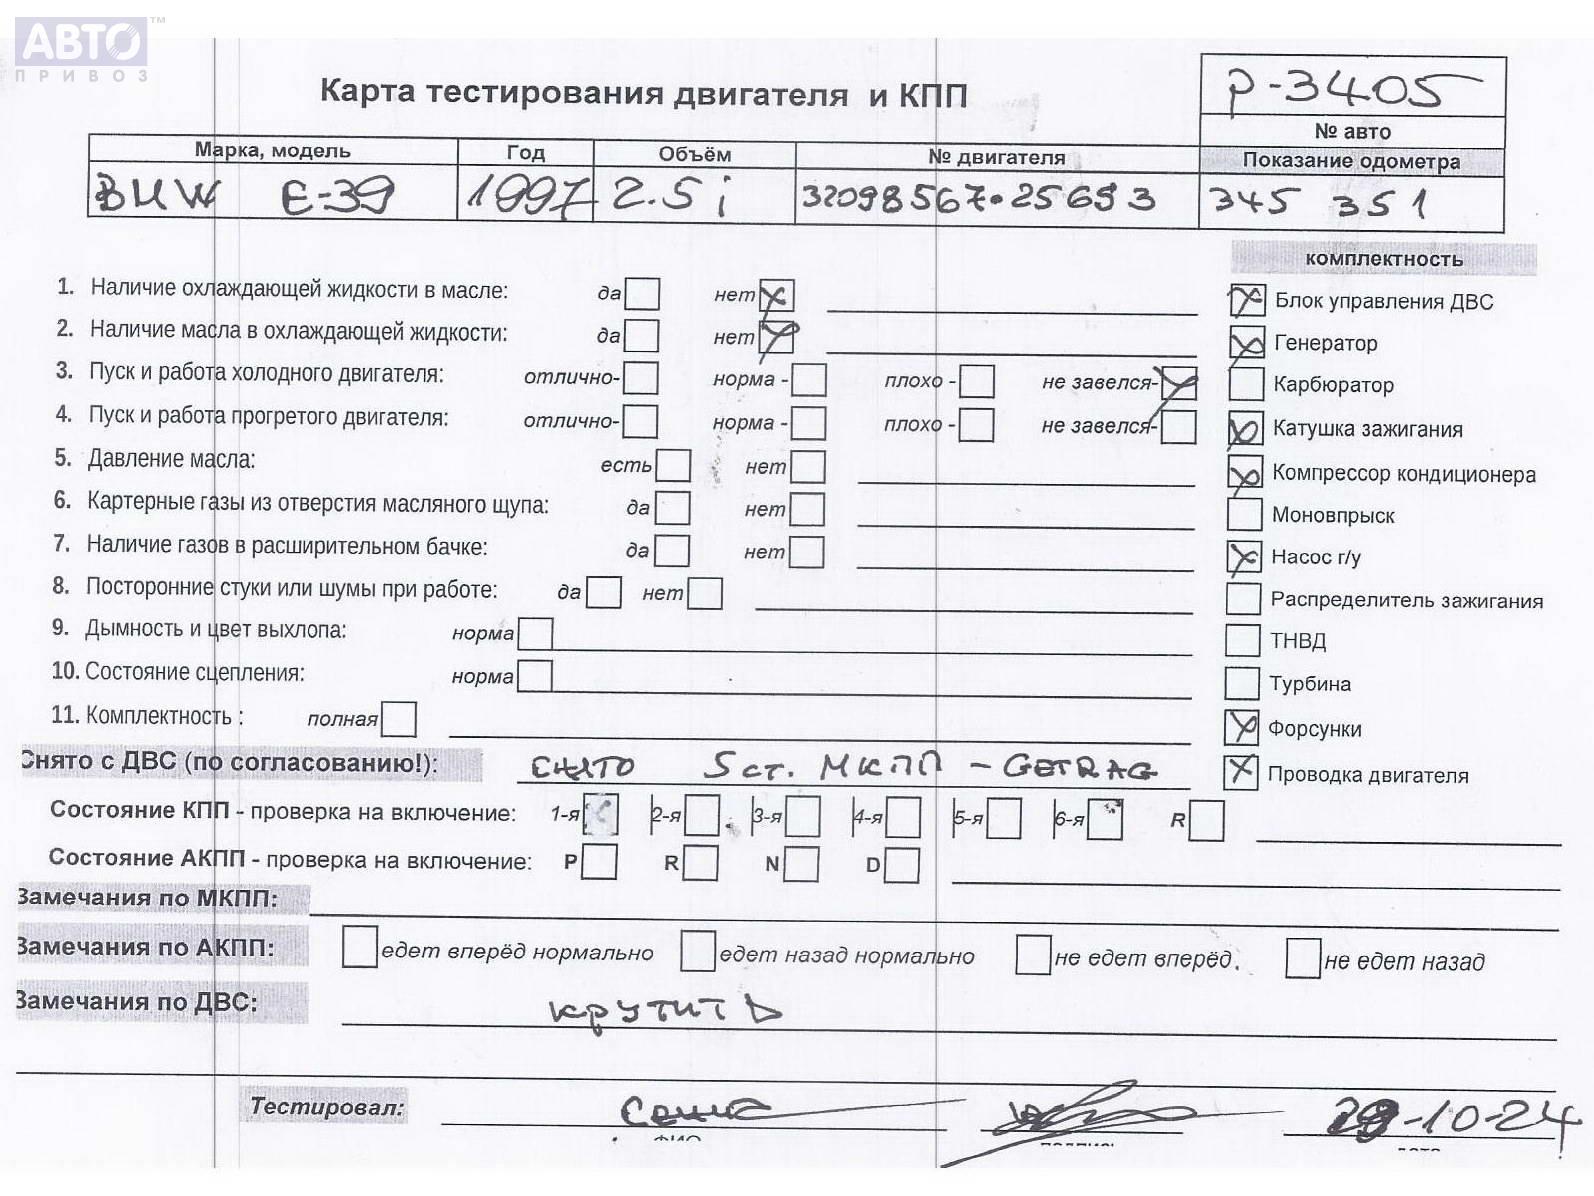 АВТО™
ПРИВОЗ
Карта тестирования двигателя и КПП
P-3405
№ авто
Марка, модель Год Объём № двигателя Показание одометра
BMW E-39 1997 2.5 i 32098567•25693 345 351
комплектность
1. Наличие охлаждающей жидкости в масле: да нет
Блок управления ДВС
2. Наличие масла в охлаждающей жидкости: да нет
Генератор
3. Пуск и работа холодного двигателя: отлично- норма - плохо - не завелся-
Карбюратор
4. Пуск и работа прогретого двигателя: отлично- норма - плохо - не завелся-
Катушка зажигания
5. Давление масла: есть нет
Компрессор кондиционера
6. Картерные газы из отверстия масляного щупа: да нет
Моновпрыск
7. Наличие газов в расширительном бачке: да нет
Насос г/у
8. Посторонние стуки или шумы при работе: да нет
Распределитель зажигания
9. Дымность и цвет выхлопа: норма
ТНВД
10. Состояние сцепления: норма
Турбина
11. Комплектность : полная
Форсунки
Снято с ДВС (по согласованию!): снято 5ст. МКПП - GETRAG
Проводка двигателя
Состояние КПП - проверка на включение: 1-я 2-я 3-я 4-я 5-я 6-я R
Состояние АКПП - проверка на включение: P R N D
Замечания по МКПП:
Замечания по АКПП: едет вперёд нормально едет назад нормально не едет вперёд. не едет назад
Замечания по ДВС: крутить
Тестировал: -10-24
ФИО подпись дата